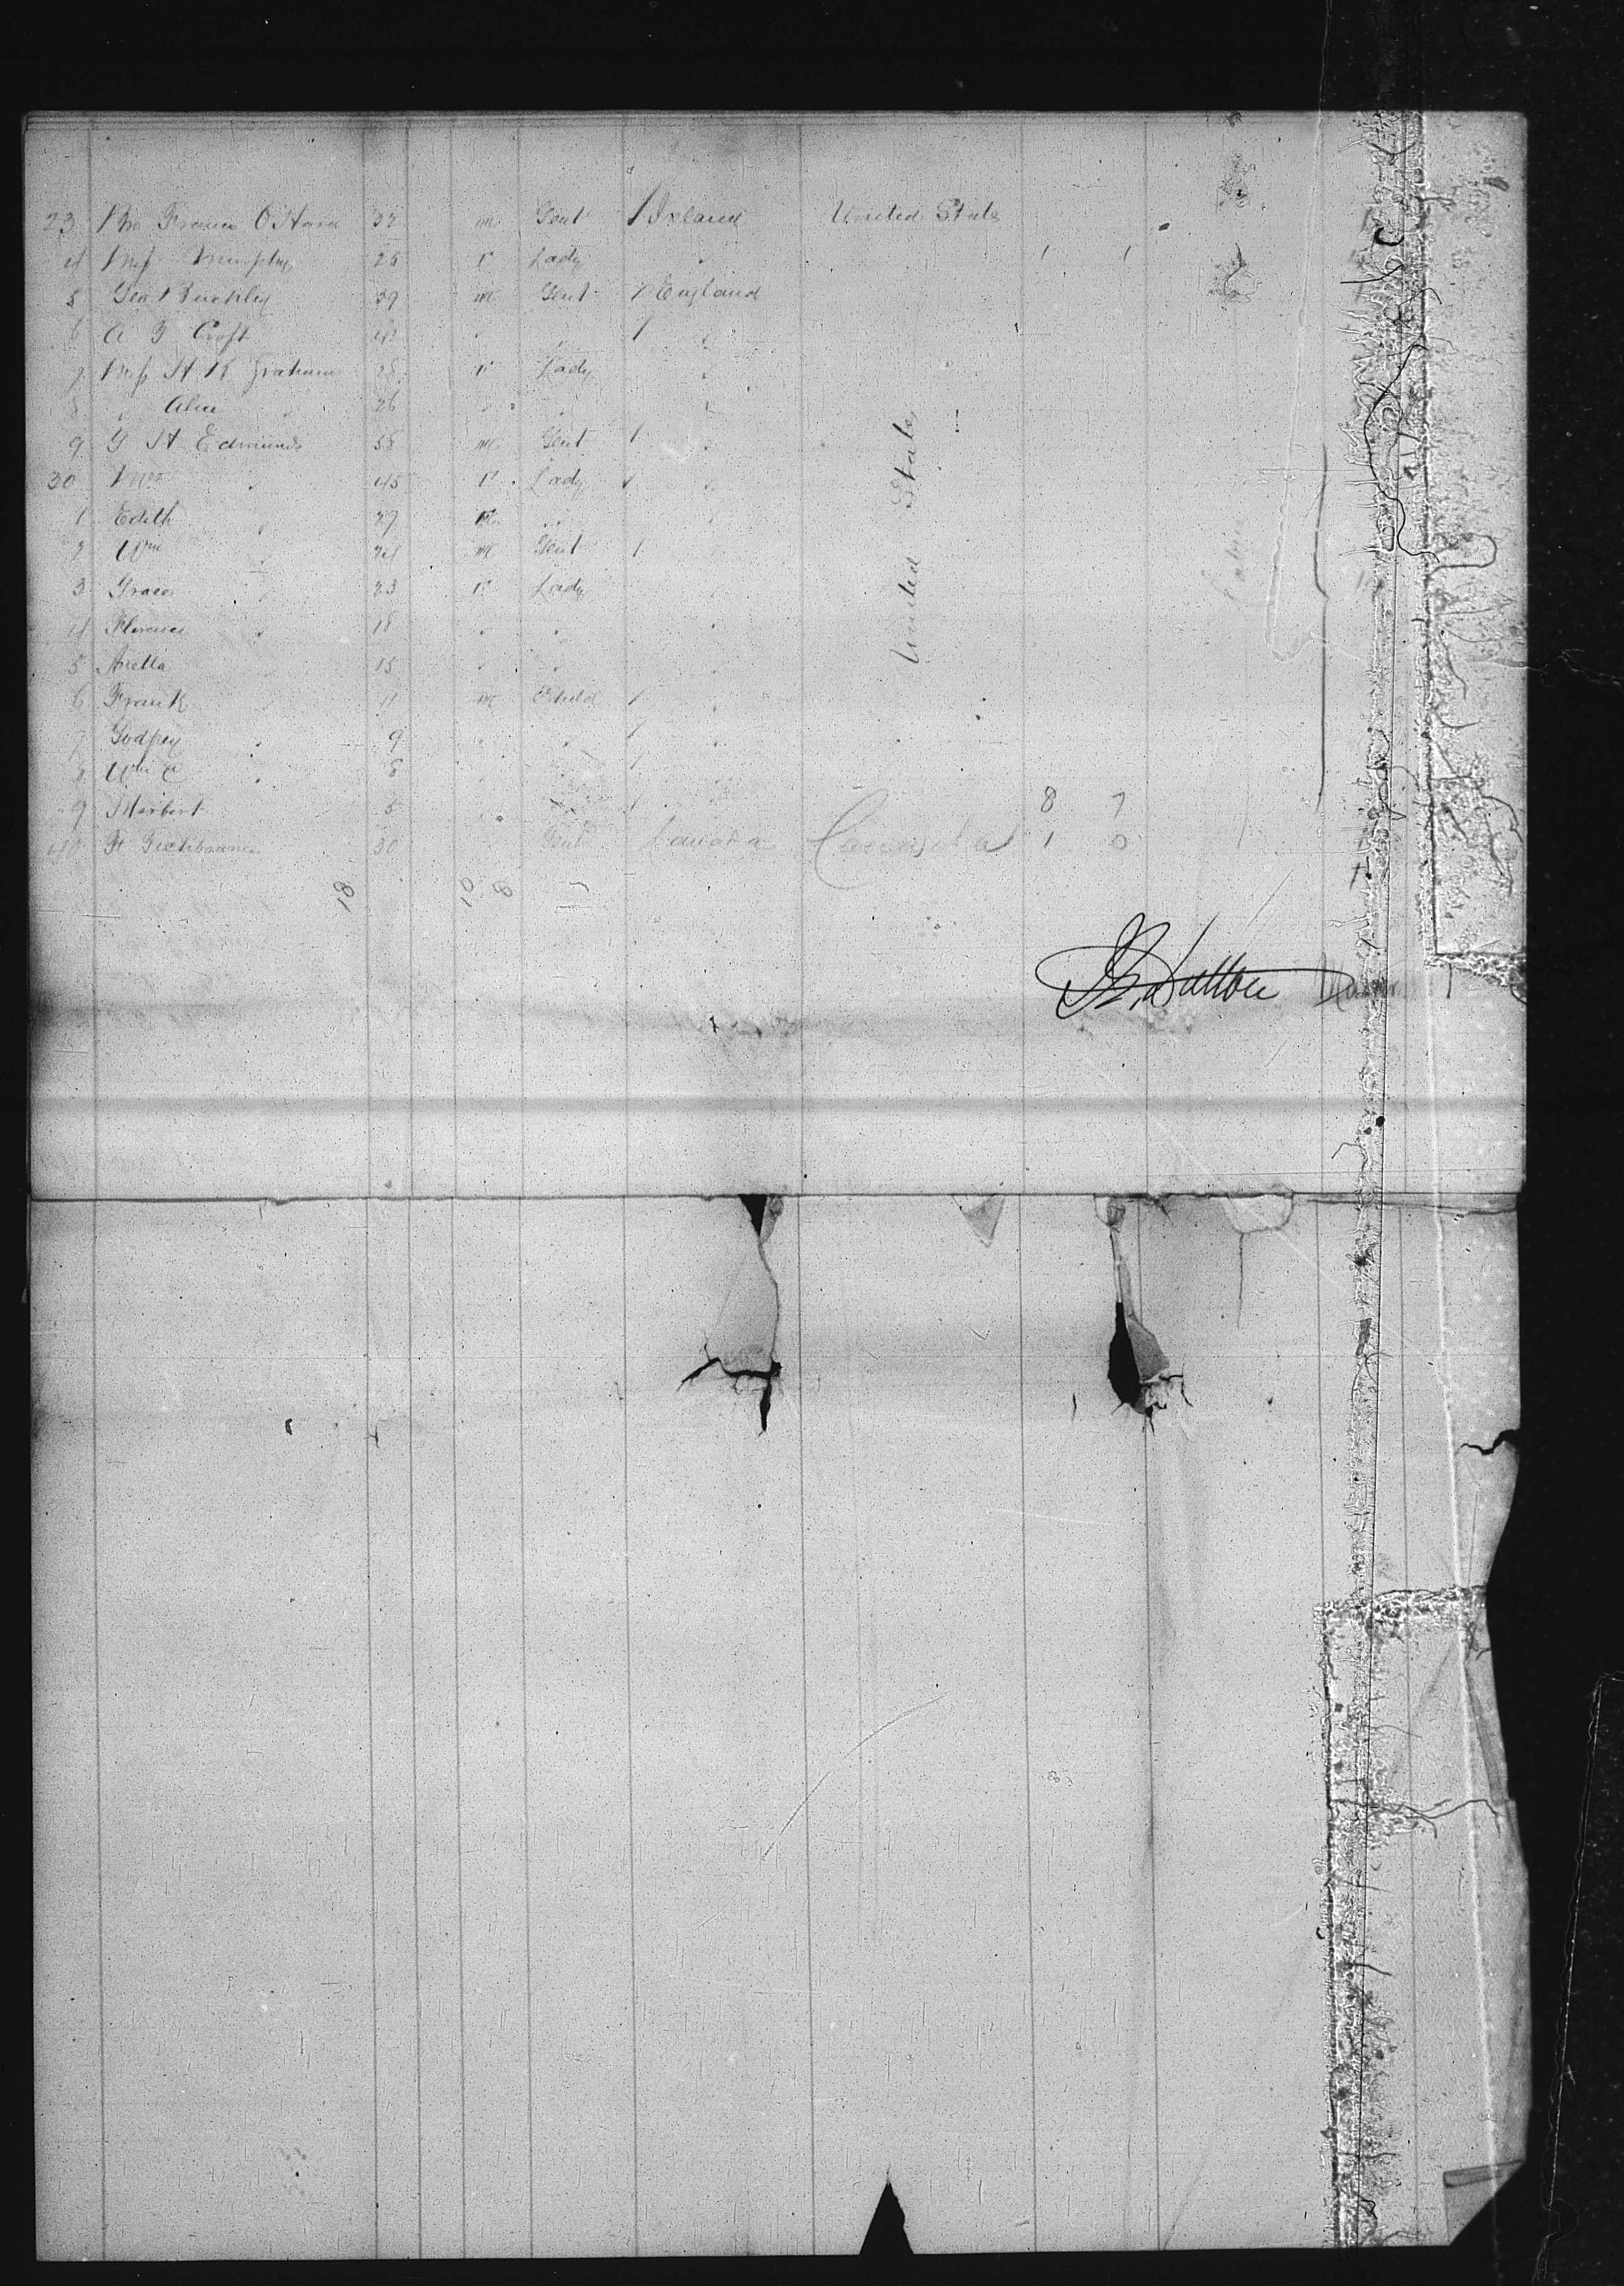 23 Francis O'Hara 32 m Gent / Ireland United State
4 Miss Murphy 25 F Lady " 1 1
5 Geo Buckley 39 m Gent / England
6 A Croft " /  "
7 Miss H R Graham 28 F Lady "
8 " Alice " 26 " " "
9 G H Edmunds 58 m Gent / "
30 Mrs " 45 F Lady / "
1 Edith " 27 F " "
2 Wm 24 m Gent / "
3 Grace " 23 F Lady "
4 Florence " 18 " " "
5 15 " " "
6 Frank " 11 m Child / "
7 Godfrey " 9 " " / "
8 Wm C " 8 " /
9 Herbert 5 " / 8 7
40 30 Gent Canada Canada 1 0
United State
18 10 8